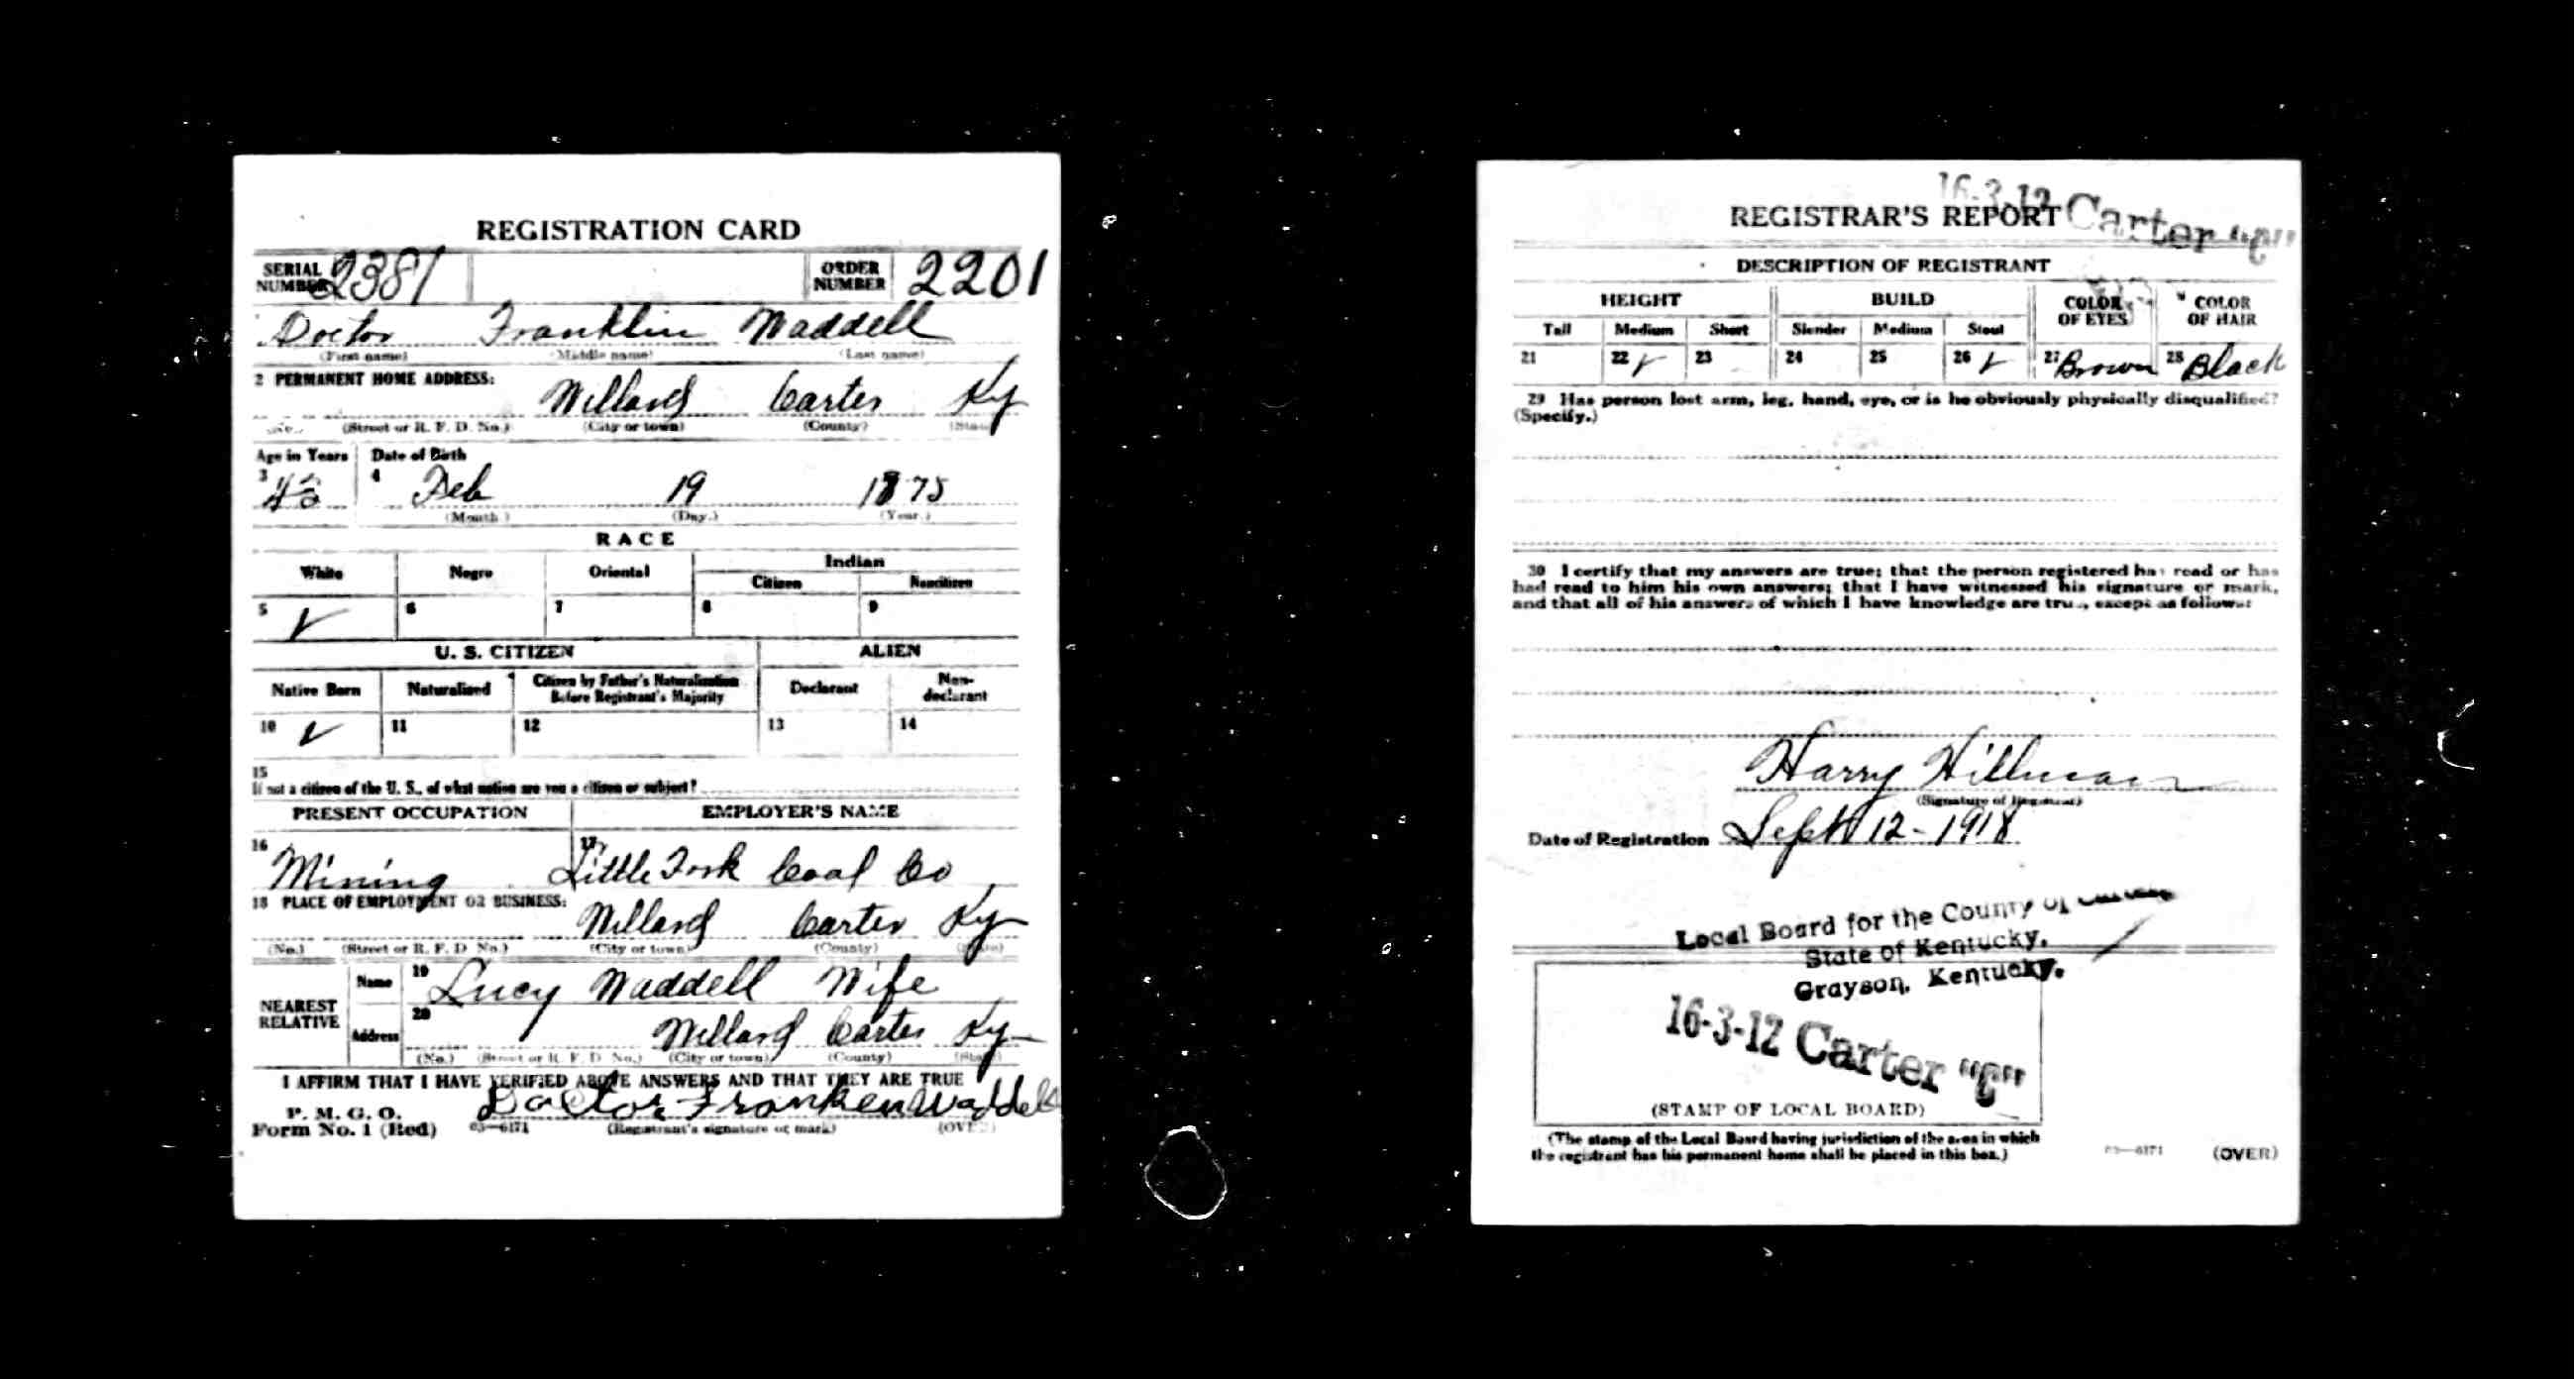 REGISTRATION CARD
SERIAL NUMBER 2381 ORDER NUMBER 2201
Doctor Franklin Waddell
(First name) (Middle name) (Last name)
2 PERMANENT HOME ADDRESS:
Willard Carter Ky
(No.) (Street or R. F. D. No.) (City or town) (County) (State)
Age in Years Date of Birth
3 43 4 Feb 19 1875
(Month.) (Day.) (Year.)
RACE
White Negro Oriental Indian
Citizen Noncitizen
5 ✓ 6 7 8 9
U. S. CITIZEN ALIEN
Native Born Naturalized Citizen by Father's Naturalization Before Registrant's Majority Declarant Non-declarant
10 ✓ 11 12 13 14
15
If not a citizen of the U. S., of what nation are you a citizen or subject?
PRESENT OCCUPATION EMPLOYER'S NAME
16 Mining 17 Little Fork Coal Co
18 PLACE OF EMPLOYMENT OR BUSINESS:
Willard Carter Ky
(No.) (Street or R. F. D. No.) (City or town) (County) (State)
NEAREST RELATIVE Name 19 Lucy Waddell Wife
Address 20 Willard Carter Ky
(No.) (Street or R. F. D. No.) (City or town) (County) (State)
I AFFIRM THAT I HAVE VERIFIED ABOVE ANSWERS AND THAT THEY ARE TRUE
P. M. G. O.
Form No. 1 (Red) 03—6171 Doctor Franken Waddell
(Registrant's signature or mark) (OVER)
16-3-12 Carter "C"
REGISTRAR'S REPORT
DESCRIPTION OF REGISTRANT
HEIGHT BUILD COLOR OF EYES COLOR OF HAIR
Tall Medium Short Slender Medium Stout
21 22 ✓ 23 24 25 26 ✓ 27 Brown 28 Black
29 Has person lost arm, leg, hand, eye, or is he obviously physically disqualified?
(Specify.)
30 I certify that my answers are true; that the person registered has read or has
had read to him his own answers; that I have witnessed his signature or mark,
and that all of his answers of which I have knowledge are true, except as follows:
Harry Hillman
(Signature of Registrar)
Date of Registration Sept 12-1918
Local Board for the County of Carter
State of Kentucky.
Grayson, Kentucky.
16-3-12 Carter "C"
(STAMP OF LOCAL BOARD)
(The stamp of the Local Board having jurisdiction of the area in which
the registrant has his permanent home shall be placed in this box.)
03—6171 (OVER)